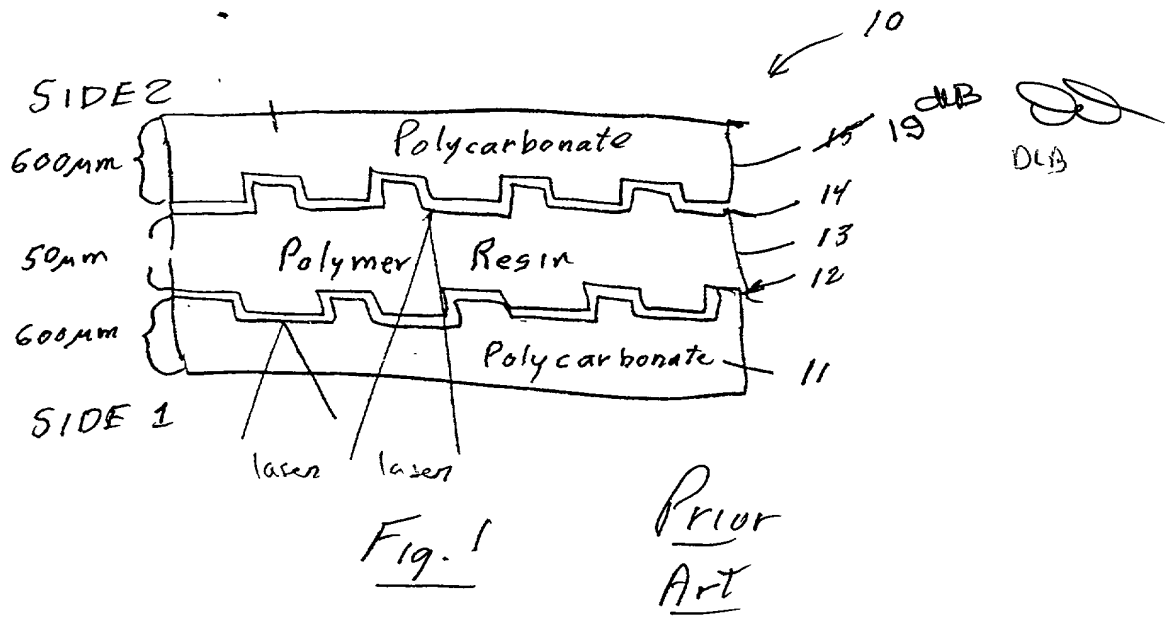 10
SIDE 2
600µm
Polycarbonate
15 19 DLB
DLB
14
50µm
Polymer Resin
13
12
600µm
Polycarbonate
11
SIDE 1
laser laser
Fig. 1
Prior
Art